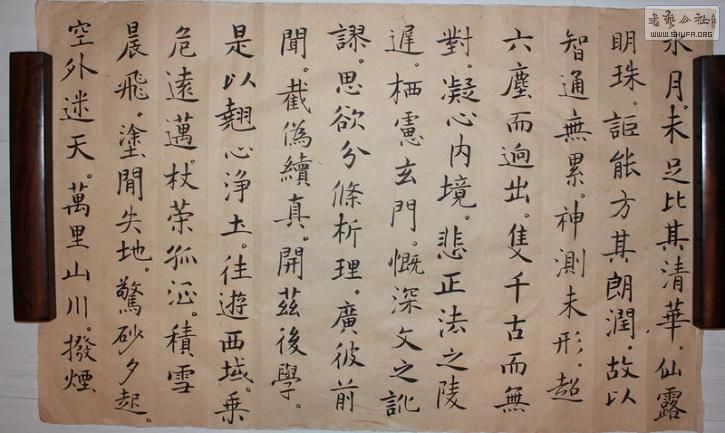 書藝公社
WWW.SHUFA.ORG
水月。未足比其清華。仙露
明珠。詎能方其朗潤。故以
智通無累。神測未形。超
六塵而迥出。隻千古而無
對。凝心內境。悲正法之陵
遲。栖慮玄門。慨深文之訛
謬。思欲分條析理。廣彼前
聞。截僞續真。開茲後學。
是以翹心淨土。往遊西域。乘
危遠邁。杖策孤征。積雪
晨飛。塗閒失地。驚砂夕起。
空外迷天。萬里山川。撥煙